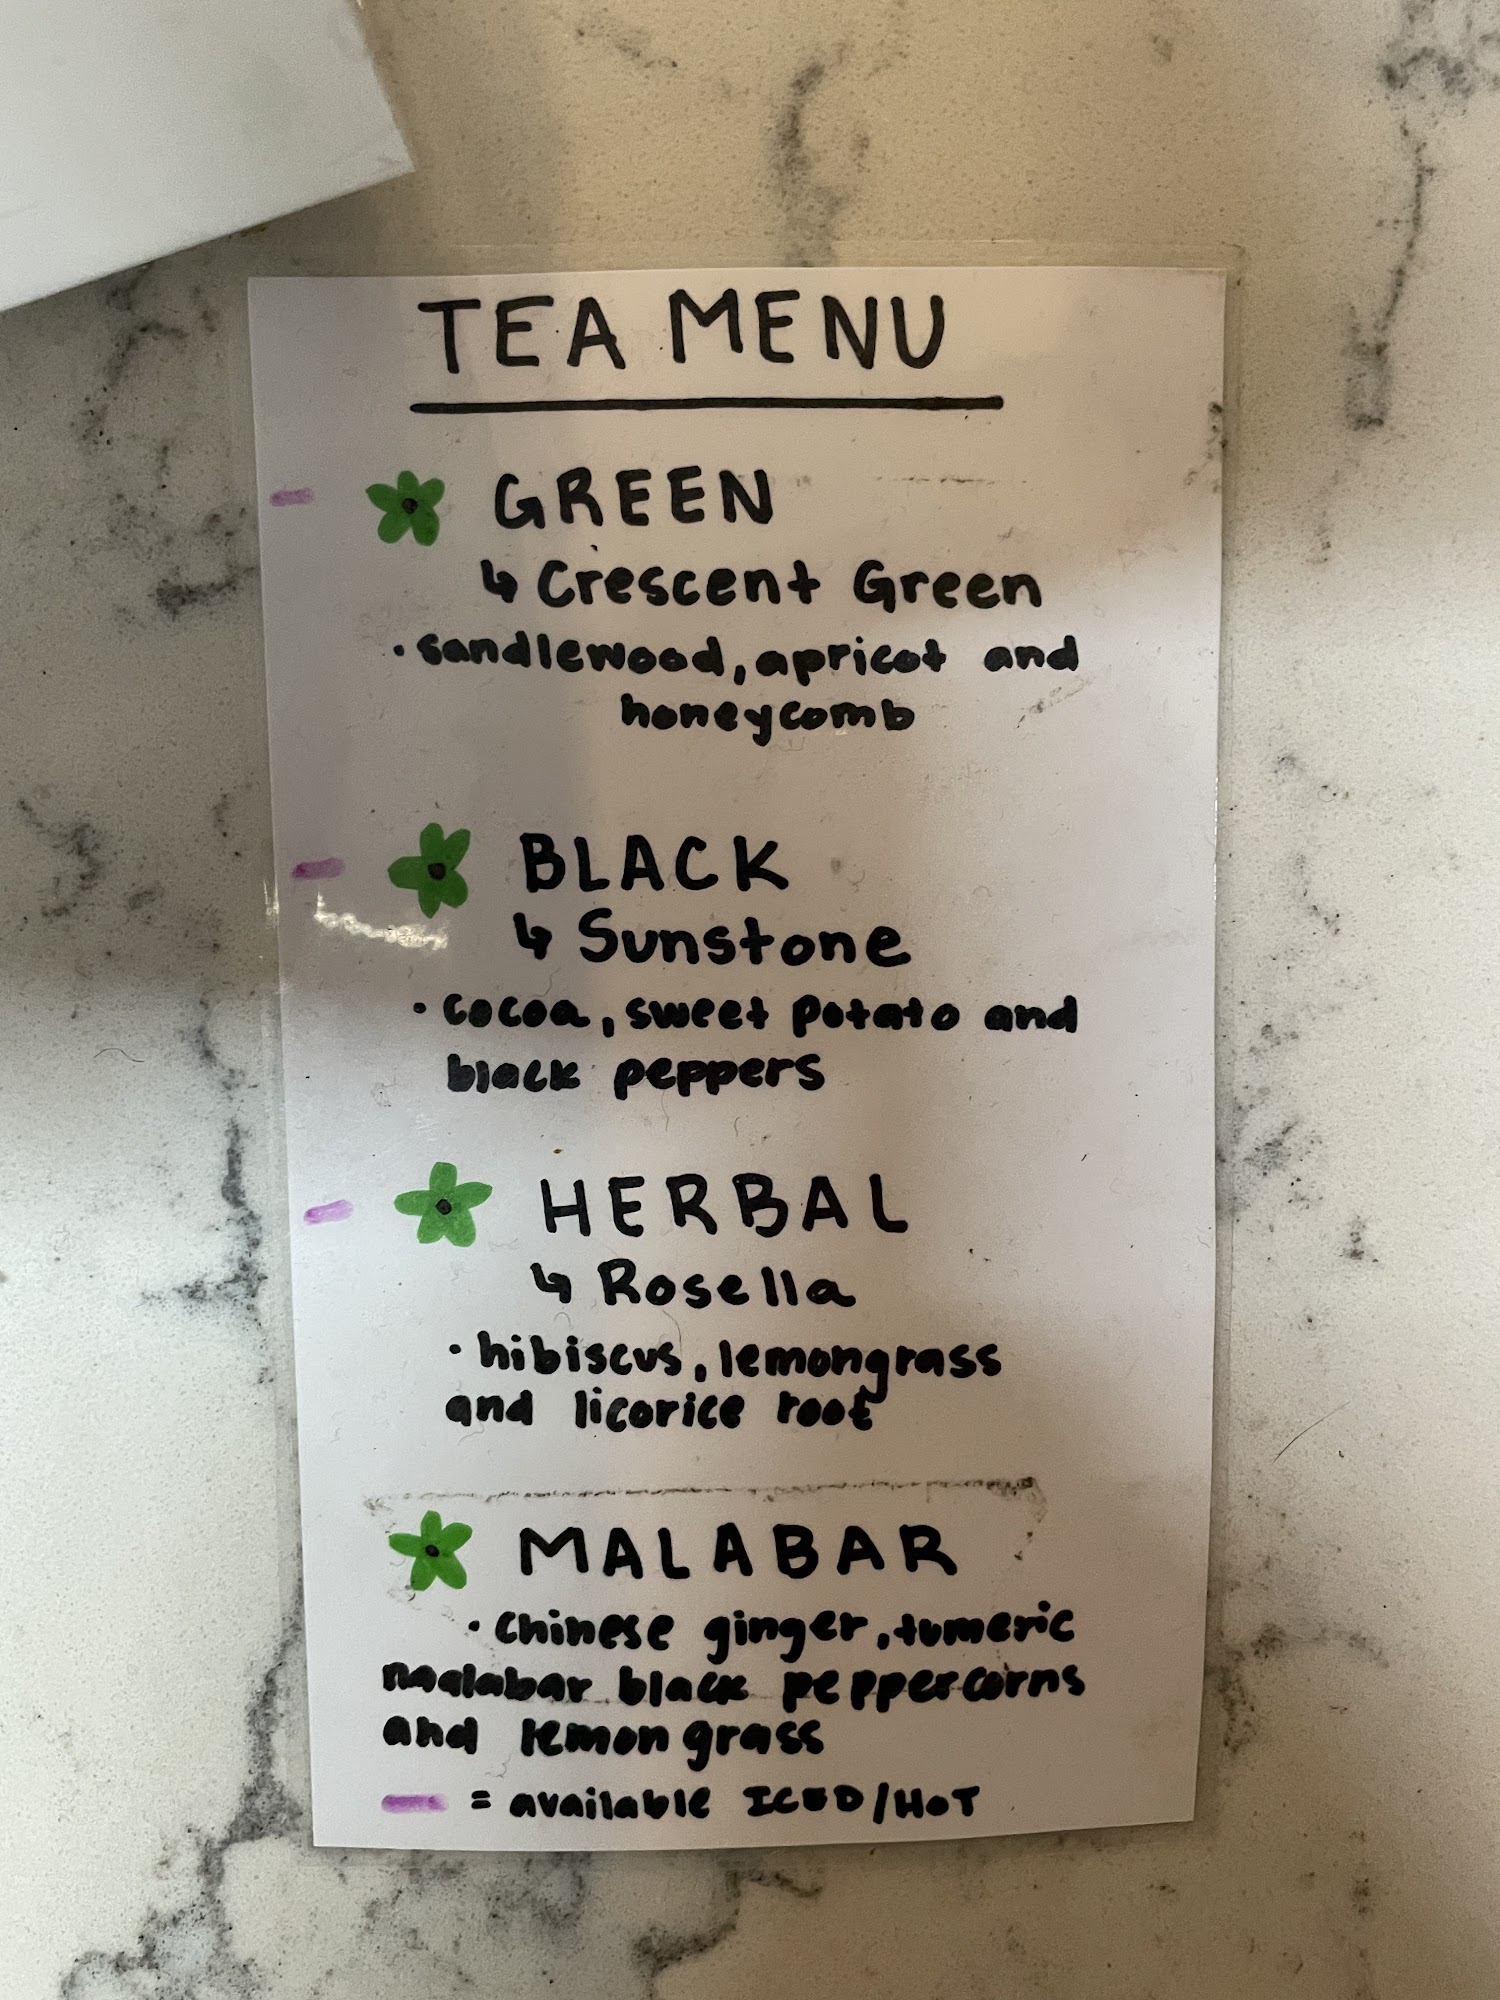 TEA MENU
GREEN
↳ Crescent Green
· sandlewood, apricot and
honeycomb
BLACK
↳ Sunstone
· cocoa, sweet potato and
black peppers
HERBAL
↳ Rosella
· hibiscus, lemongrass
and licorice root
MALABAR
· Chinese ginger, tumeric
malabar black peppercorns
and lemon grass
= available ICED/HOT